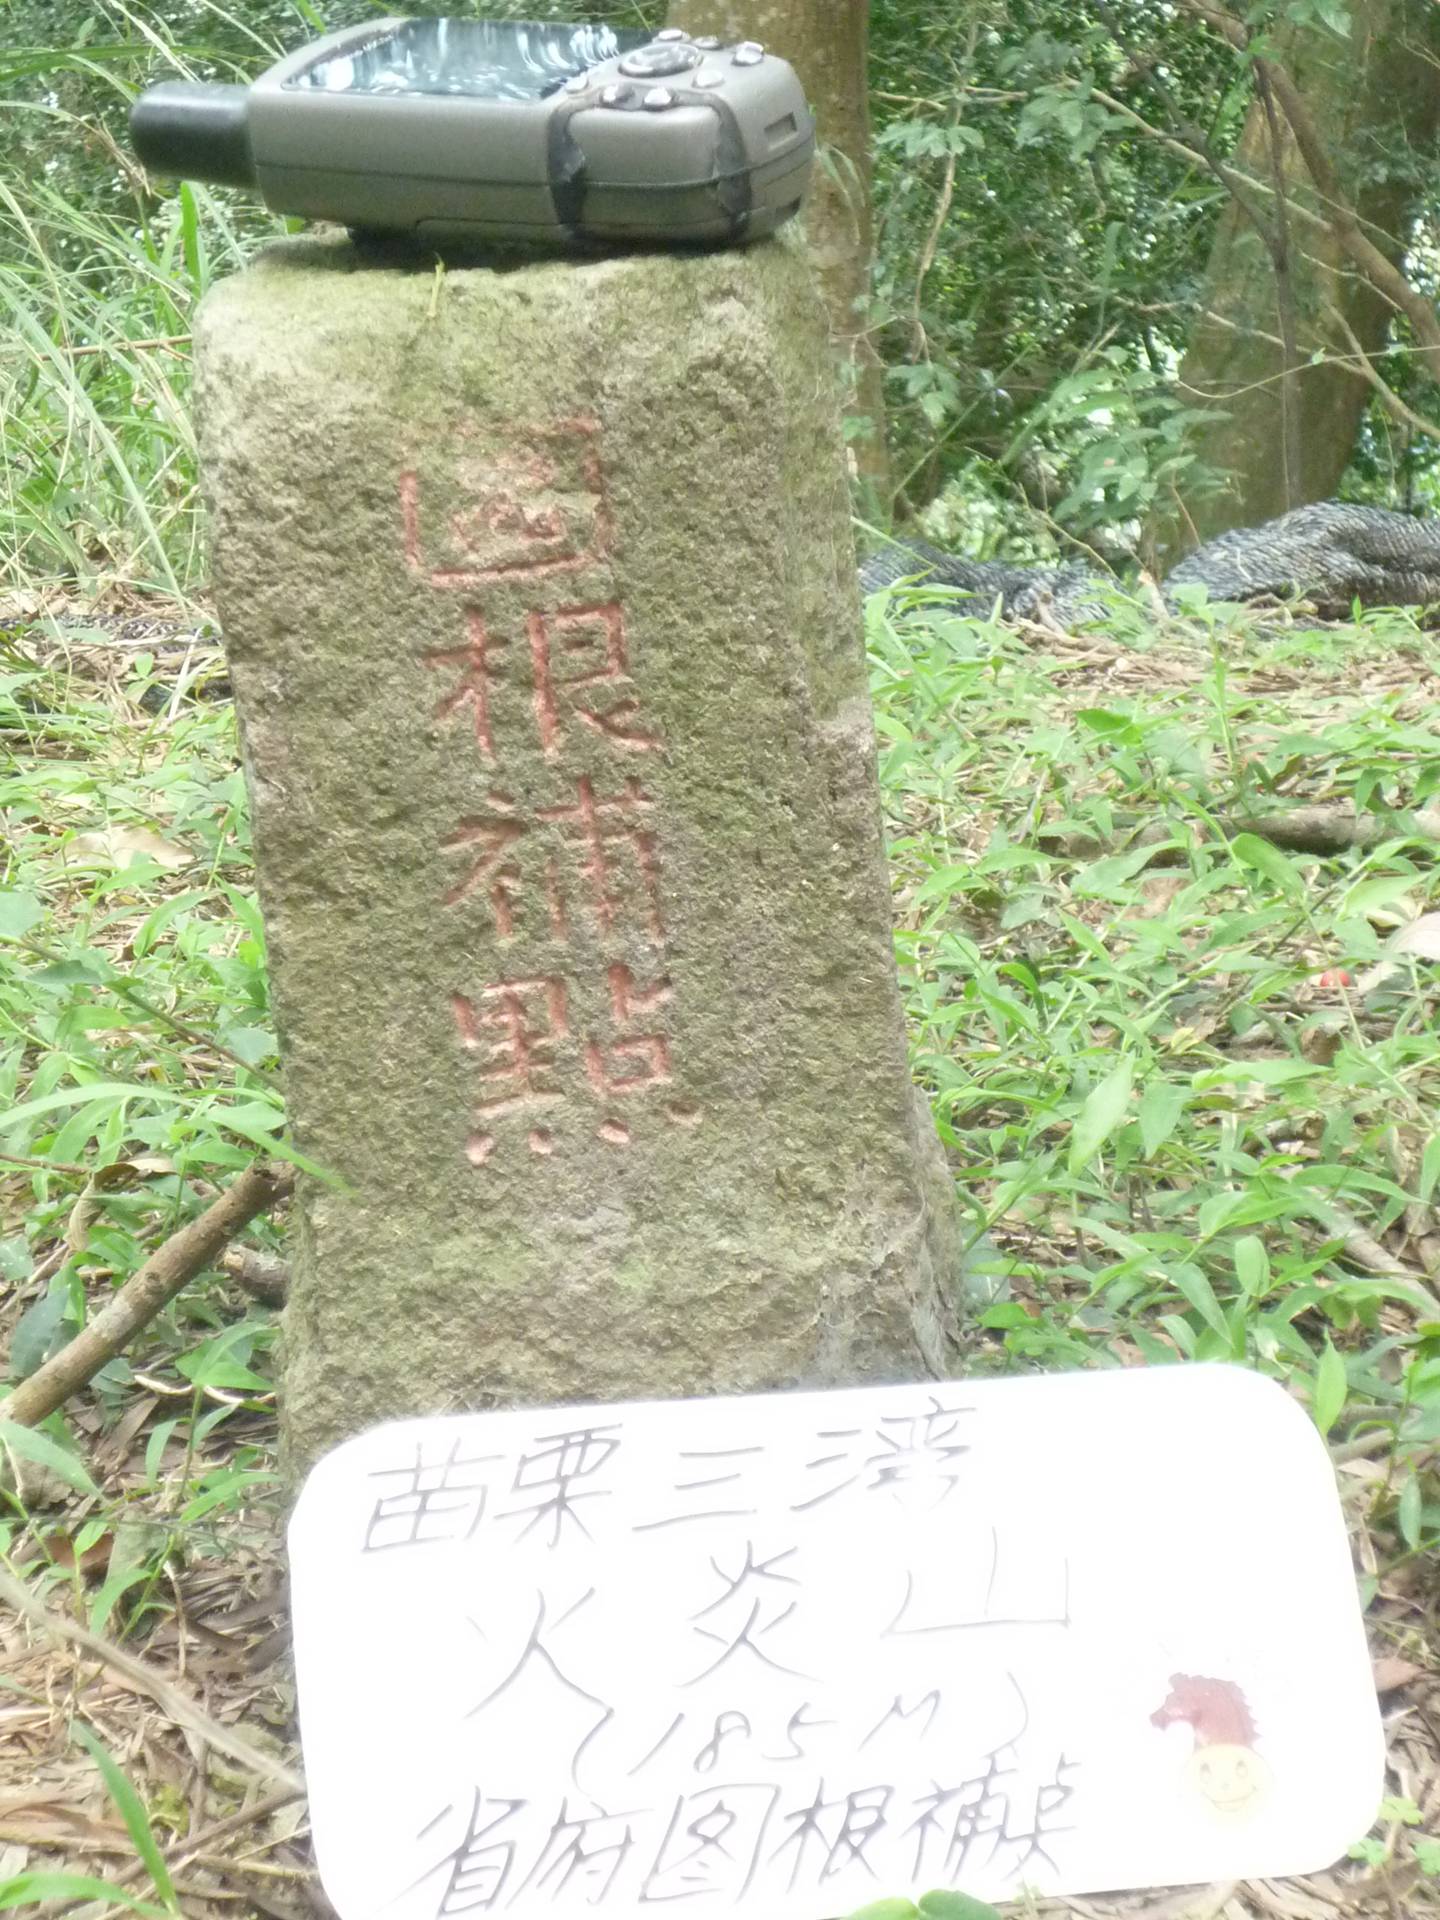 圖根補點
苗栗三湾
火炎山
(185M)
省府图根補奌